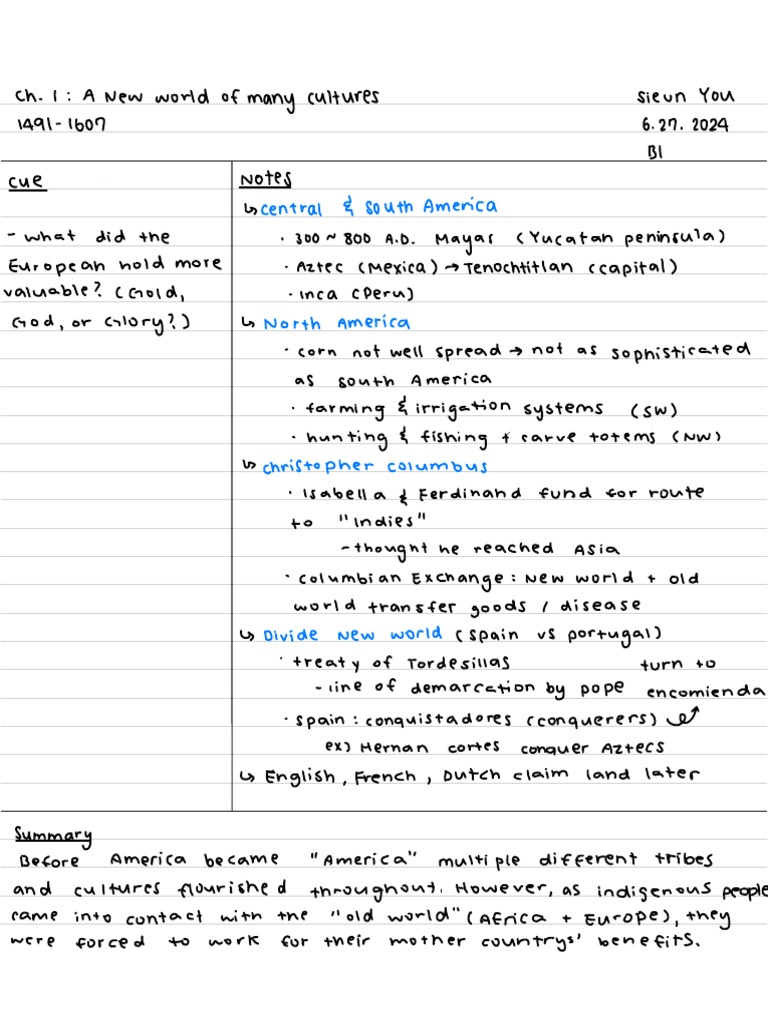 Ch. 1 : A New world of many cultures
Sieun You
1491-1607
6.27. 2024
B1
Cue
Notes
- what did the
European hold more
valuable? (Gold,
God, or Glory?)
↳ central & South America
· 300 ~ 800 A.D. Mayas (Yucatan peninsula)
· Aztec (Mexica) → Tenochtitlan (capital)
· Inca (Peru)
↳ North America
· corn not well spread → not as sophisticated
as south America
· farming & irrigation systems (SW)
· hunting & fishing + carve totems (NW)
↳ christopher columbus
· Isabella & Ferdinand fund for route
to "Indies"
- thought he reached Asia
· Columbian Exchange : New world + old
world transfer goods / disease
↳ Divide New world (Spain vs portugal)
· treaty of Tordesillas
- line of demarcation by pope
turn to
encomienda
· Spain : conquistadores (conquerers)
ex) Hernan cortes conquer Aztecs
↳ English, French, Dutch claim land later
Summary
Before America became "America" multiple different tribes
and cultures flourished throughout. However, as indigenous people
came into contact with the "old world" (Africa + Europe), they
were forced to work for their mother countrys' benefits.